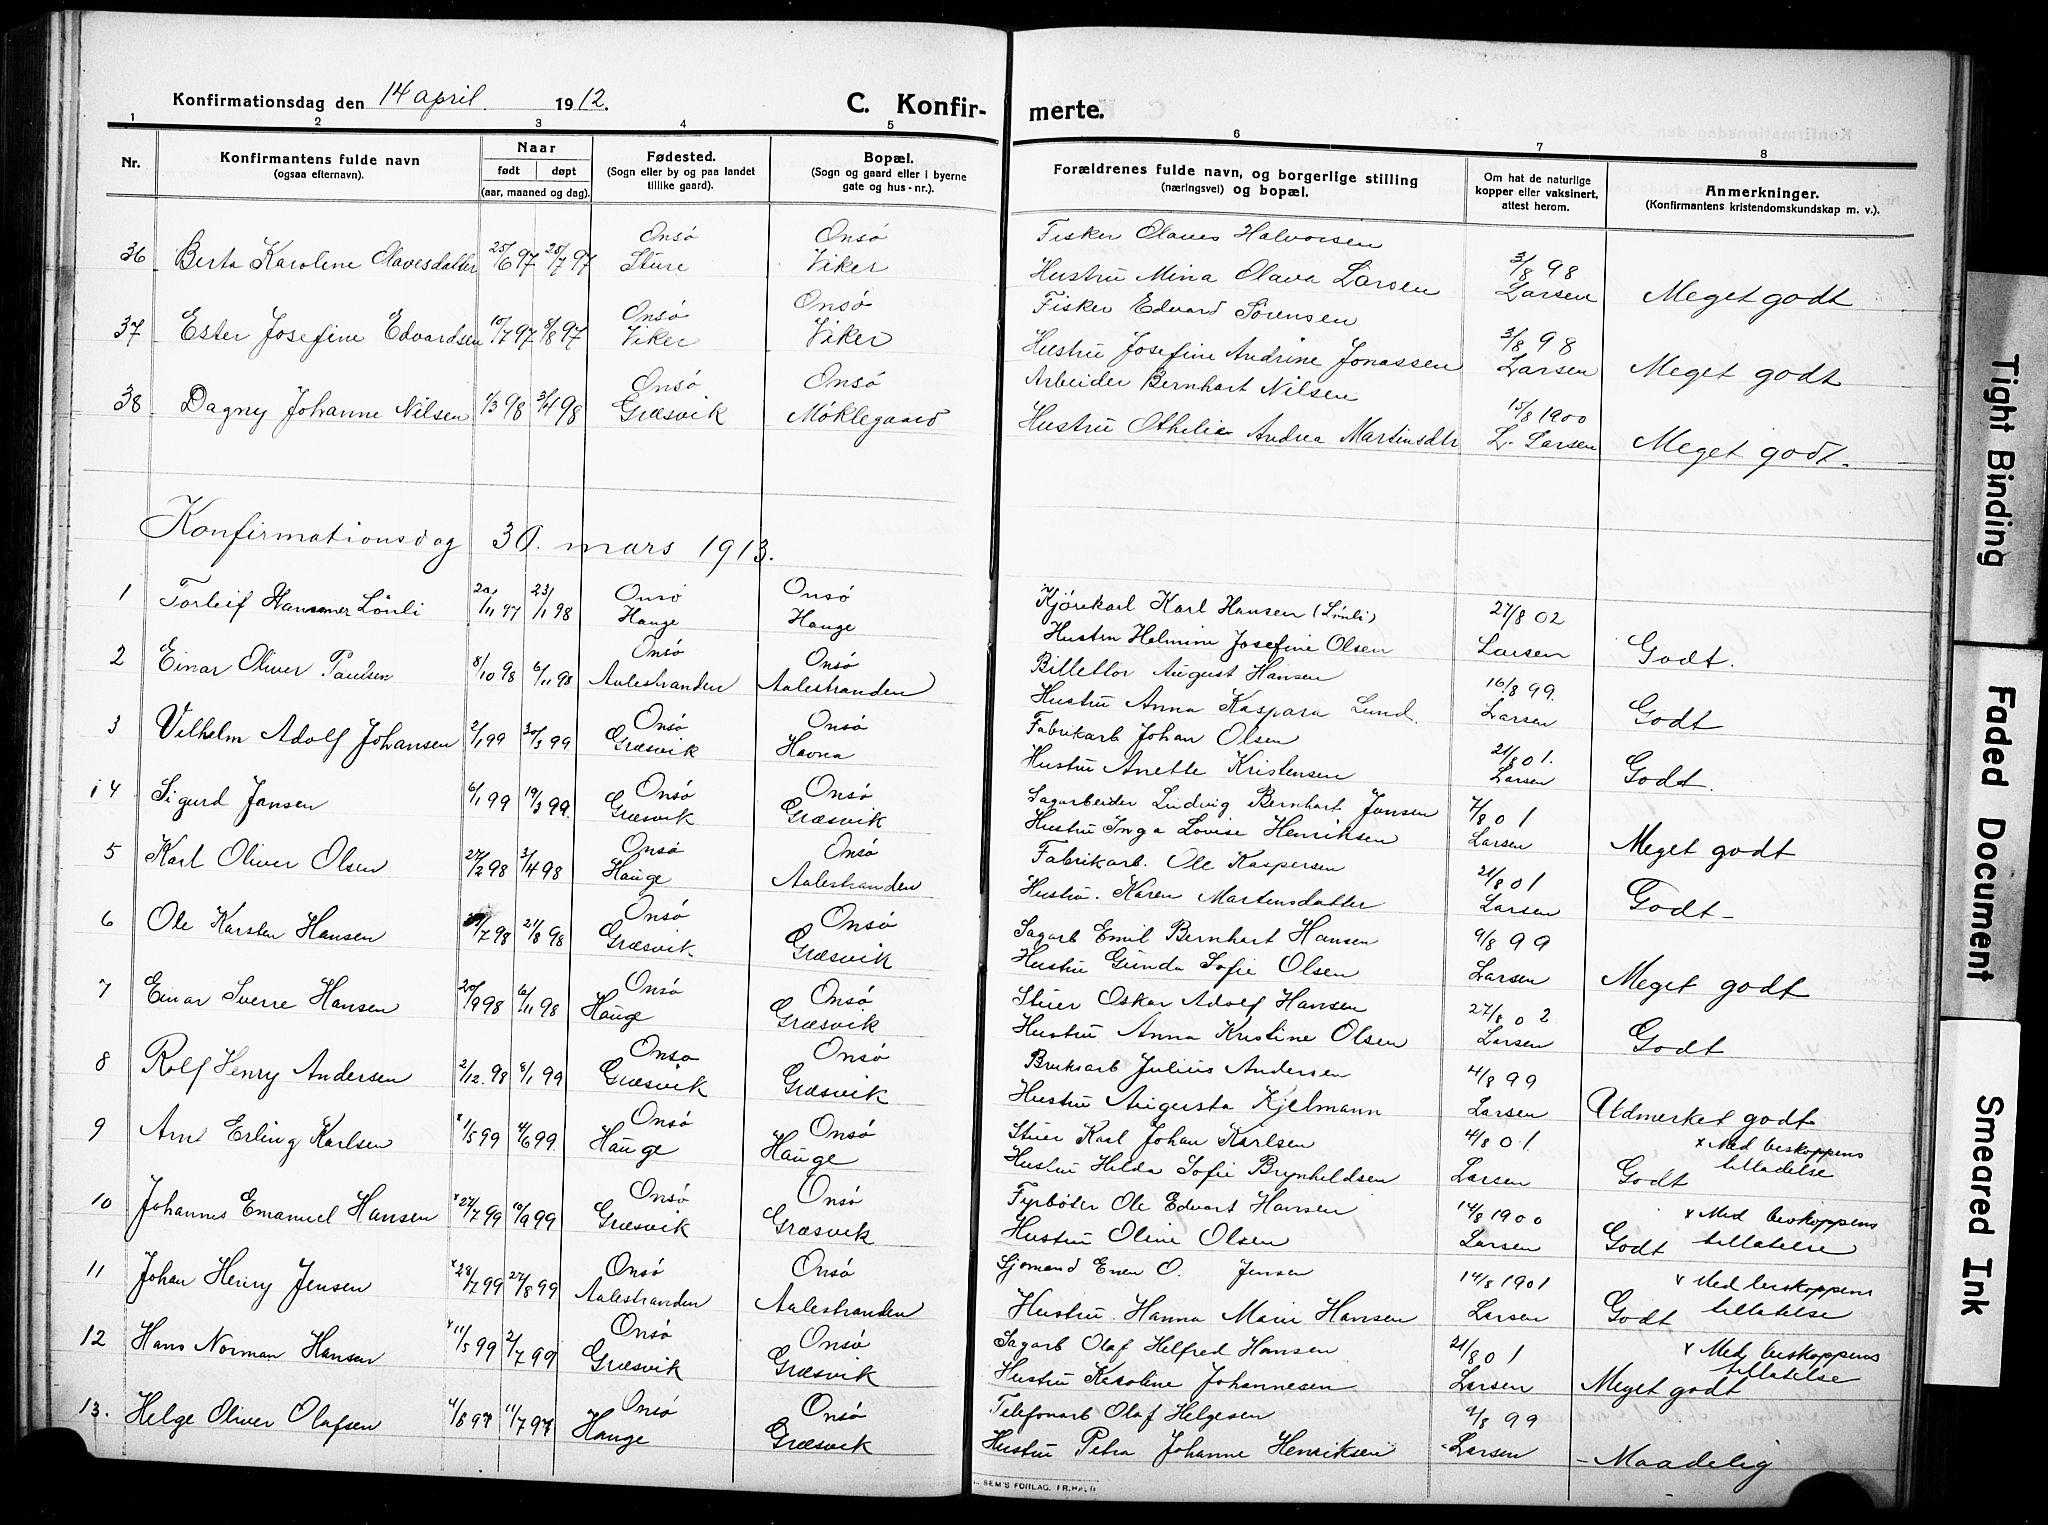 Konfirmationsdag den 14 april. 1912. C. Konfir- merte.
1 2 3 4 5 6 7 8
Nr. Konfirmantens fulde navn (ogsaa efternavn). Naar født døpt (aar, maaned og dag). Fødested. (Sogn eller by og paa landet tillike gaard). Bopæl. (Sogn og gaard eller i byerne gate og hus-nr.). Forældrenes fulde navn, og borgerlige stilling (næringsvei) og bopæl. Om hat de naturlige kopper eller vaksinert, attest herom. Anmerkninger. (Konfirmantens kristendomskundskap m. v.).
Onsø Onsø Fisker Olaves Halvorsen 3/8 98
36 Berta Karoline Olavesdatter 25/6 97 25/7 97 Sture Viker Hustru Mina Olava Larsen Larsen Meget godt
Onsø Onsø Fisker Edvard Sørensen 3/8 98
37 Ester Josefine Edvardsen 10/7 97 8/8 97 Viker Viker Hustru Josefine Andrine Jonassen Larsen Meget godt
Onsø Onsø Arbeider Bernhart Nilsen 15/8 1900
38 Dagny Johanne Nilsen 1/3 98 3/4 98 Græsvik Møklegaard Hustru Othelie Andrea Martinsdtr L. Larsen Meget godt.
Konfirmationsdag 30. mars 1913.
1 Torleif Lönli 20/11 97 23/1 98 Onsø Onsø Kjørekarl Karl Hansen (Lönli) 27/8 02
Hauge Hauge Hustru Helmine Josefine Olsen Larsen Godt.
2 Einar Oliver Paulsen 8/10 98 6/11 98 Onsø Onsø Billettør August Hansen 16/8 99.
Aalestranden Aalestranden Hustru Anna Kaspara Lund. Larsen Godt
3 Vilhelm Adolf Johansen 2/1 99 30/3 99 Onsø Onsø Fabrikarb Johan Olsen 21/8 01.
Græsvik Havna Hustru Anette Kristensen Larsen Godt.
4 Sigurd Jansen 6/1 99 19/3 99. Onsø Onsø Sagarbeider Ludvig Bernhart Jansen 7/8 01
Græsvik Græsvik Hustru Inga Lovise Henriksen Larsen Meget godt
5 Karl Oliver Olsen 27/2 98 3/4 98 Onsø Onsø Fabrikarb. Ole Kaspersen 21/8 01
Hauge Aalestranden Hustru. Karen Martensdatter Larsen Godt-
6 Ole Karsten Hansen /7 98 21/8 98 Onsø Onsø Sagarb Emil Bernhart Hansen 9/8 99
Græsvik Græsvik Hustru Gunda Sofie Olsen Larsen Meget godt
7 Einar Sverre Hansen 20/9 98 6/11 98 Onsø Onsø Stuer Oskar Adolf Hansen 27/8 02
Hauge Græsvik Hustru Anna Kristine Olsen Larsen Godt
8 Rolf Henry Andersen 2/12. 98 8/1 99 Onsø Onsø Bruksarb Julius Andersen 4/8 99
Græsvik Græsvik Hustru Augusta Kjelmann Larsen Udmerket godt
9 Arne Erling Karlsen x 1/5 99 4/6 99. Onsø Onsø Stuer Karl Johan Karlsen 4/8 01. x Med biskoppens
Hauge Hauge Hustru Hilda Sofie Brynhildsen Larsen Godt tilladelse
10 Johannes Emanuel Hansen x 27/7 99 10/9 99 Onsø Onsø Fyrbøter Ole Edvart Hansen 14/8 1900 x Med biskoppens
Græsvik Græsvik Hustru Oline Olsen Larsen Godt tillatelse
11 Johan Henry Jensen x 28/7 99 27/8 99 Onsø Onsø Sjømand Enen O. Jensen 14/8 1901 x Med biskoppens
Aalestranden Aalestranden Hustru. Hanna Marie Hansen Larsen Godt tillatelse
12 Hans Norman Hansen x 11/5 99 2/7 99 Onsø Onsø Sagarb Olaf Helfred Hansen 21/8 01 x Med biskoppens
Græsvik Græsvik Hustru Karoline Johannesen Larsen Meget godt tillatelse
13. Helge Oliver Olafsen 4/6 97 11/7 97 Onsø Onsø Telefonarb Olaf Helgesen 9/8 99
Hauge Græsvik Hustru Petra Johanne Henriksen Larsen - Maadelig
SEM'S FORLAG, FR.HALD
Tight Binding
Faded Document
Smeared Ink